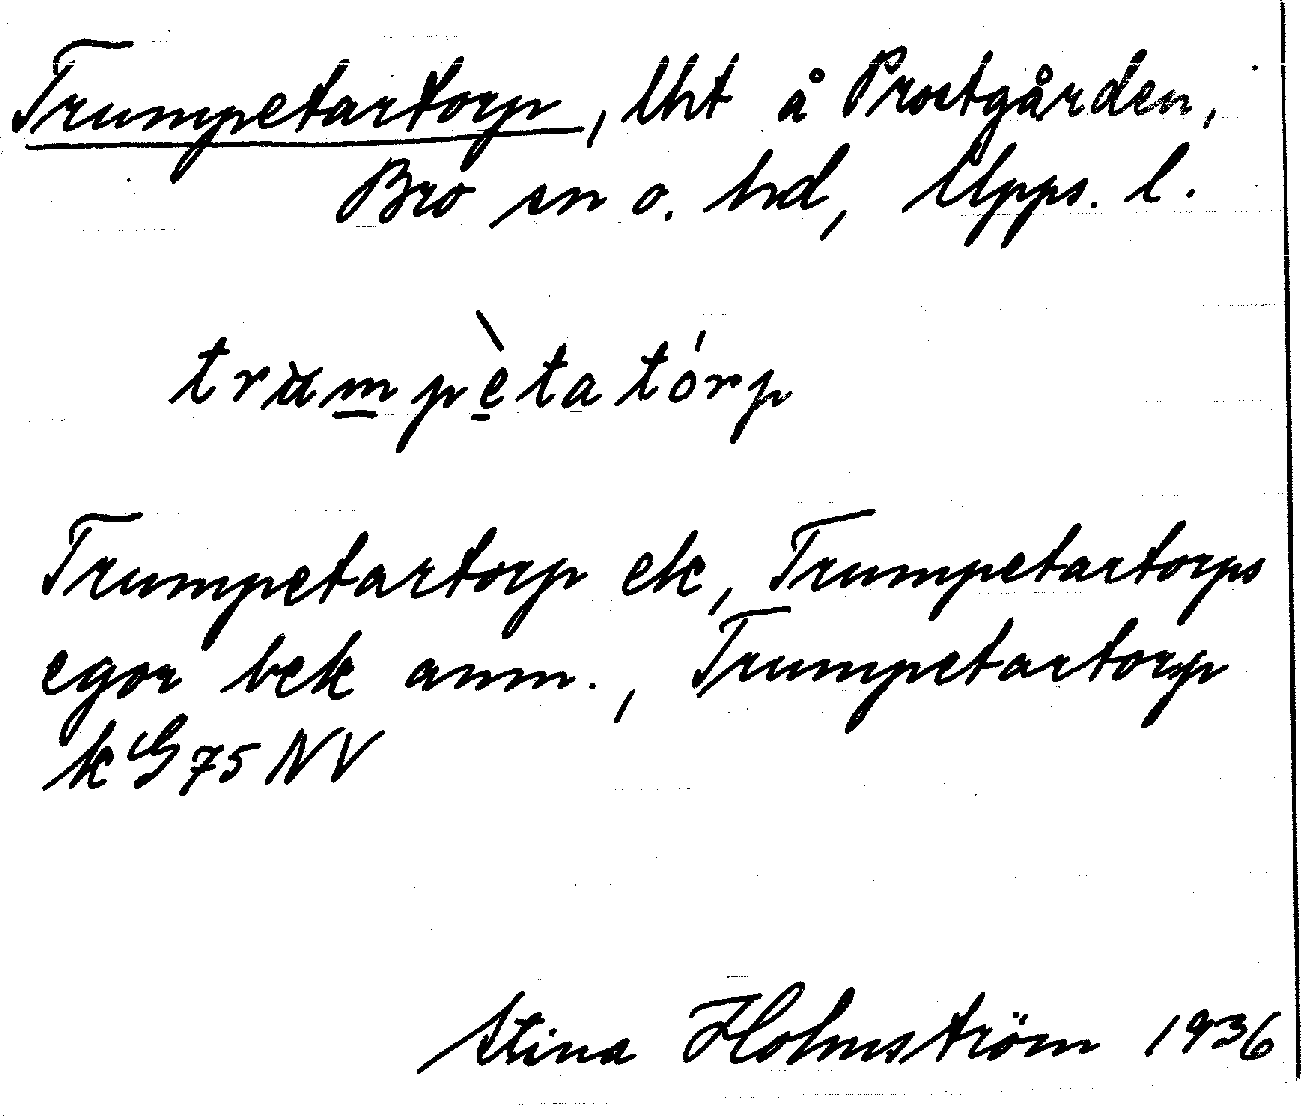 Trumpetartorp, lht å Prostgården,
Bro sn o. hd, Upps. l.
trumpètatórp
Trumpetartorp ek, Trumpetartorps
egor bek anm., Trumpetartorp
k G 75 NV
Stina Holmström 1936